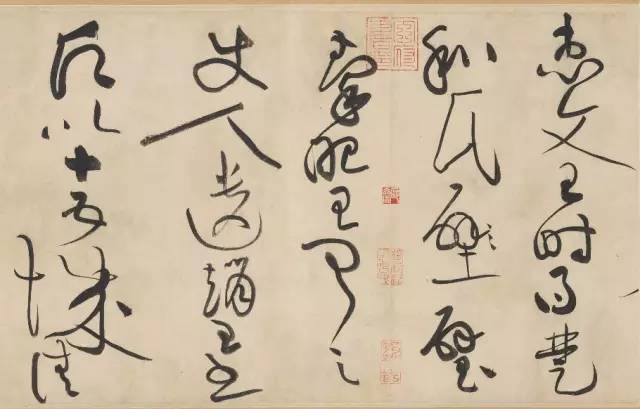 惠文王時得楚
和氏璧璧
秦昭王聞之
使人遺趙王書
願以十五城請